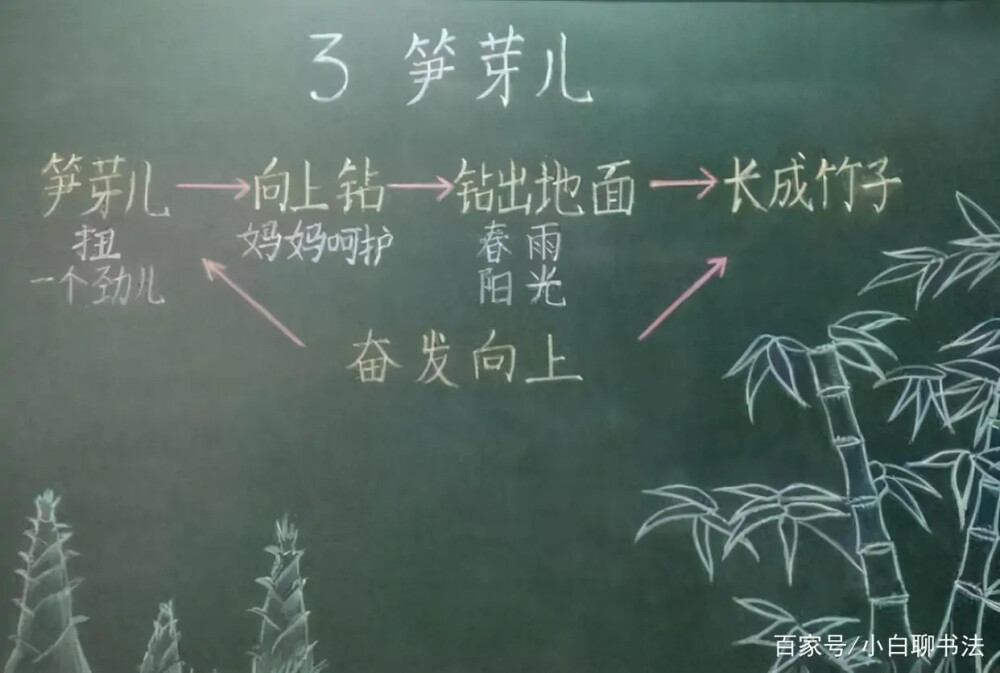 3 笋芽儿
笋芽儿 → 向上钻 → 钻出地面 → 长成竹子
扭 妈妈呵护 春雨
一个劲儿 阳光
奋发向上
百家号/小白聊书法